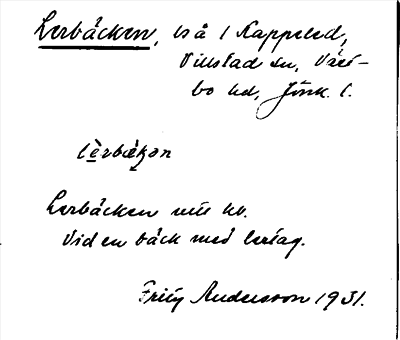 Lerbäcken, ls å l Kappeled,
Villstad sn, Väst-
bo hd, Jönk. l.
lèrbækən
Lerbäcken vill hv.
Vid en bäck med lertag.
Fritz Andersson 1931.